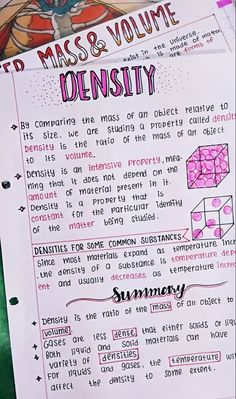 MASS & VOLUME
exist in the universe,
is made of matter
forms of
DENSITY
By comparing the mass of an object relative to
its size, we are studing a property called density
Density is the ratio of the mass of an object
to its volume.
Density is an intensive property, mea
ning that it does not depend on the
amount of material present in it.
Density is a property that is
constant for the particular identity
of the matter being studied.
DENSITIES FOR SOME COMMON SUBSTANCES
Since most materials expand as temperature incre
the density of a substance is temperature depe
ent and usually decreases as temperature increa
Summary
Density is the ratio of the mass of an object to
volume.
Gases are less dense that either solids or liqu
Both liquid and solid materials can have
variety of densities
For liquids and gases, the temperature wi
affect the density to some extent.